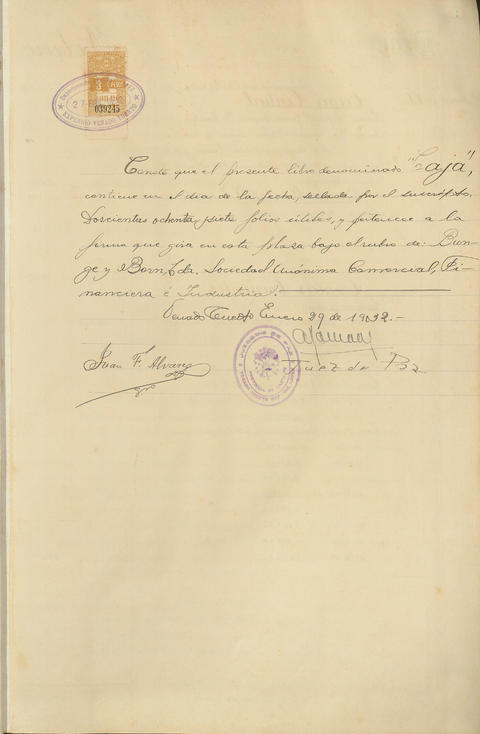 039245
Conste que el presente libro denominado "Caja",
contiene en el día de la fecha, sellada por el suscripto,
Doscientas ochenta y siete folios útiles, y pertenece a la
firma que gira en esta plaza bajo el rubro de: Bun-
ge y Born, Ltda. Sociedad Anónima Comercial, Fi-
nanciera é Industrial.
Venado Tuerto Enero 29 de 1932.-
Juan F. Alvarez
Juez de Paz